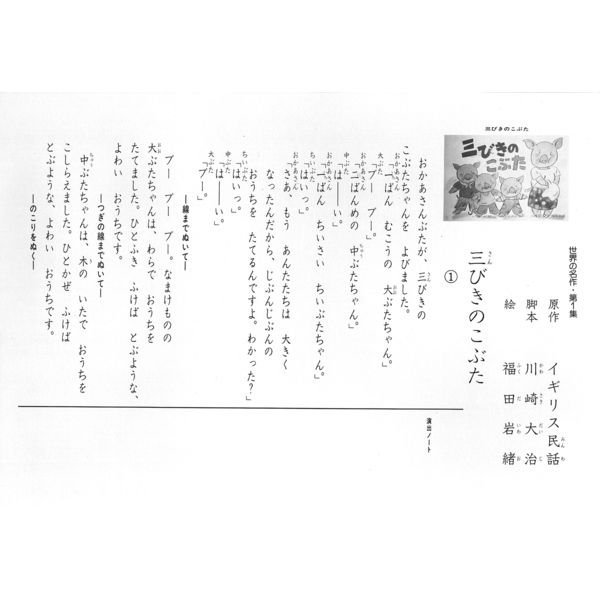 世界の名作・第1集
原作　イギリス民話
脚本　川崎大治
絵　福田岩緒
三びきのこぶた
三びきのこぶた
三びきの
こぶた
①
おかあさんぶたが、三びきの
こぶたちゃんを　よびました。
おかあさん「一ばん　むこうの　大ぶたちゃん。」
大ぶた「ブー　ブー。」
おかあさん「二ばんめの　中ぶたちゃん。」
中ぶた「はーーい。」
おかあさん「一ばん　ちいさい　ちいぶたちゃん。」
ちいぶた「はいっ。」
おかあさん「さあ、もう　あんたたちは　大きく
なったんだから、じぶんじぶんの
おうちを　たてるんですよ。わかった？」
ちいぶた「はいっ。」
中ぶた「はーーい。」
大ぶた「ブー。」
―線までぬいて―
ブー　ブー　ブー。なまけものの
大ぶたちゃんは、わらで　おうちを
たてました。ひとふき　ふけば　とぶような、
よわい　おうちです。
―つぎの線までぬいて―
中ぶたちゃんは、木の　いたで　おうちを
こしらえました。ひとかぜ　ふけば
とぶような、よわい　おうちです。
―のこりをぬく―
演出ノート